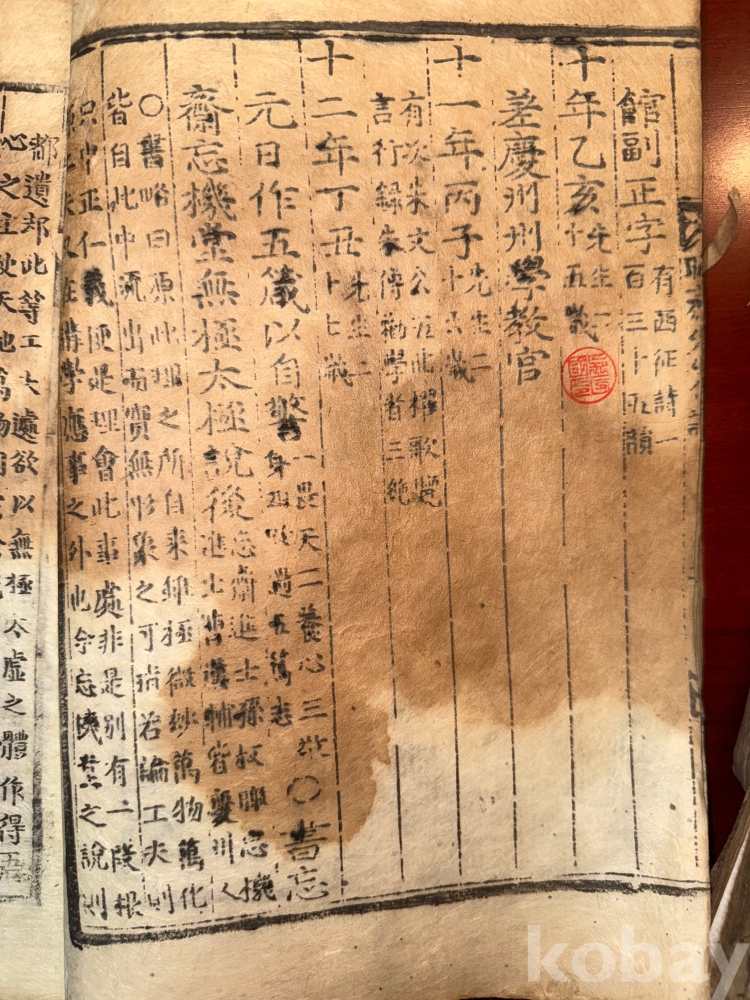 館副正字有西征詩一
百三十九韻
十年乙亥先生二
十五歲
差慶州州學教官
十一年丙子先生二
十六歲
有次朱文公五曲櫂歌覽
言行錄朱傳勸學者三絶
十二年丁丑先生二
十七歲
元日作五箴以自警一畏天二養心三敬
身四改過五篤志
○書忘
齋忘機堂無極太極說後忘齋進士孫叔暾忘機
進士曺漢輔皆慶州人
○書略曰原此理之所自來雖極微妙萬物萬化
皆自此中流出而實無形象之可指若論工夫則
只中正仁義便是理會此事處非是別有一段根
原工夫又在講學應事之外也今忘機堂之說則
都遺却此等工夫遽欲以無極太虛之體作得吾
心之主使天地萬物朝
kobay